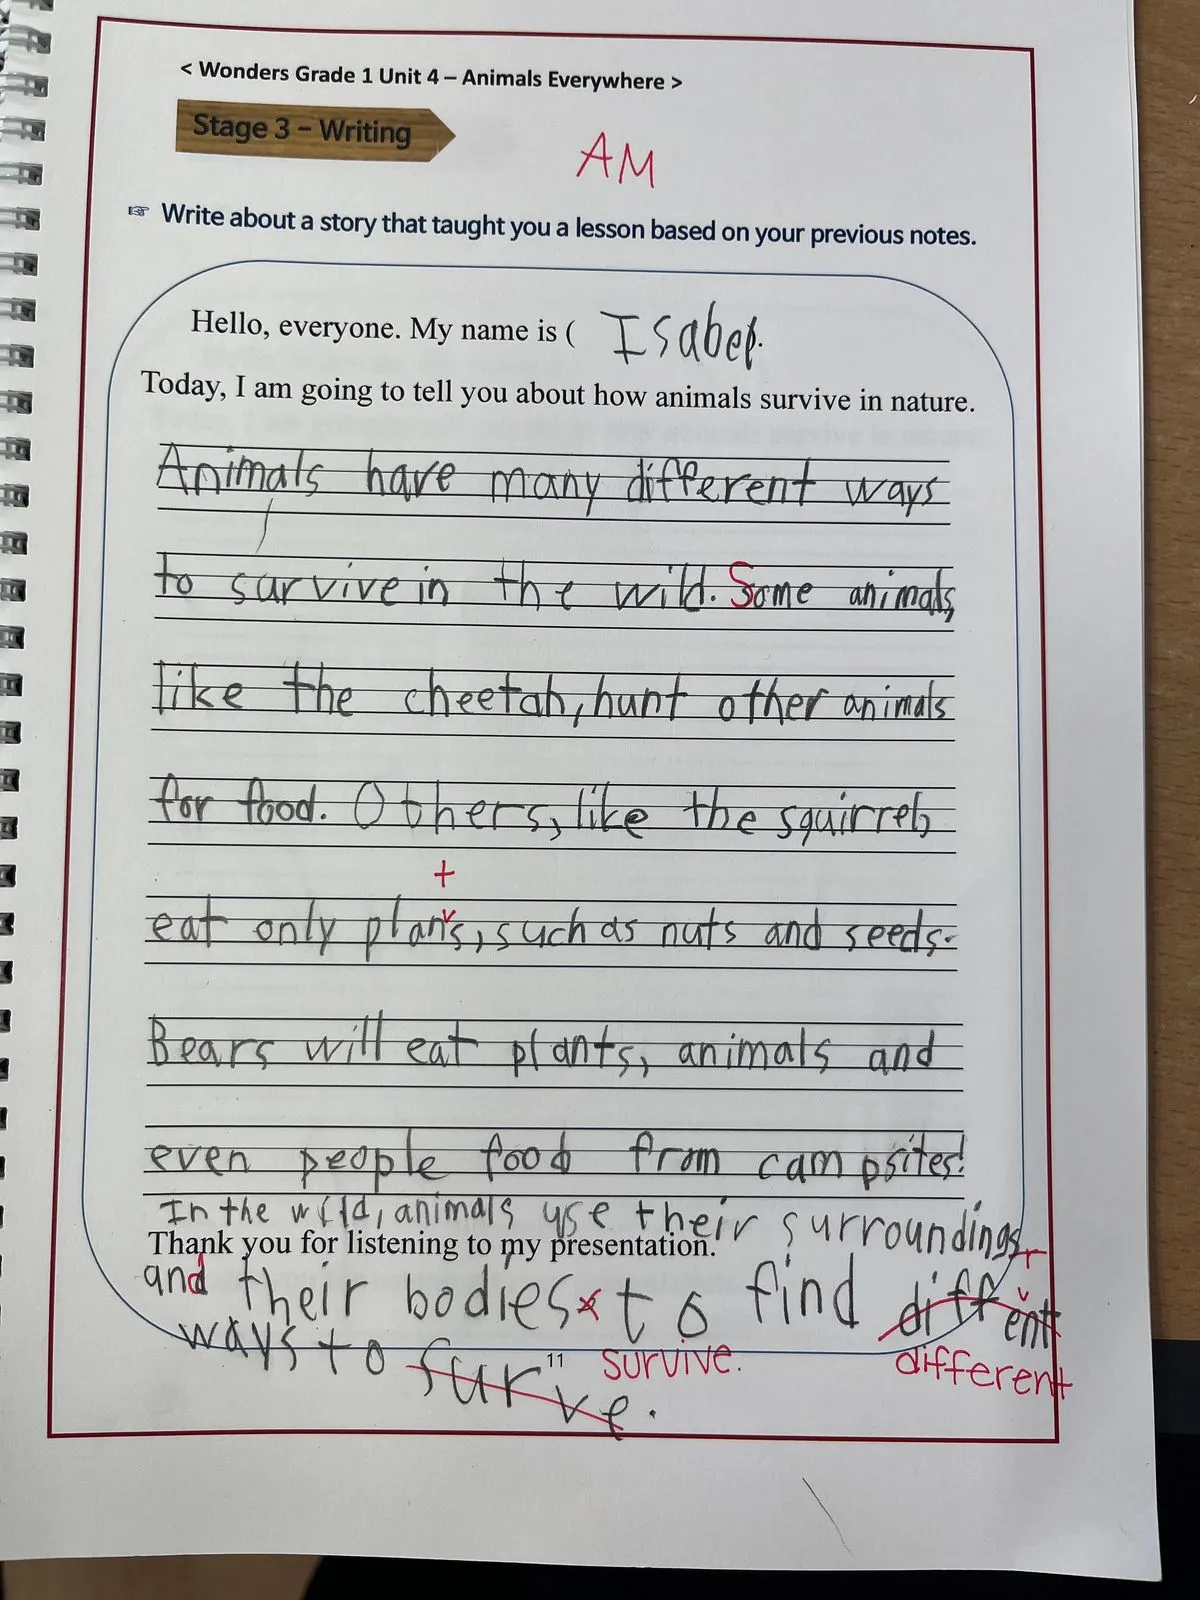 < Wonders Grade 1 Unit 4 – Animals Everywhere >
Stage 3 – Writing
AM
☞ Write about a story that taught you a lesson based on your previous notes.
Hello, everyone. My name is ( Isabel.
Today, I am going to tell you about how animals survive in nature.
Animals have many different ways
to survive in the wild. Some animals,
like the cheetah, hunt other animals
for food. Others, like the squirrel,
t
eat only plans, such as nuts and seeds.
Bears will eat plants, animals and
even people food from campsites!
In the wild, animals use their surroundings
Thank you for listening to my presentation.
and their bodies to find diffent
ways to surve.
11
survive.
different